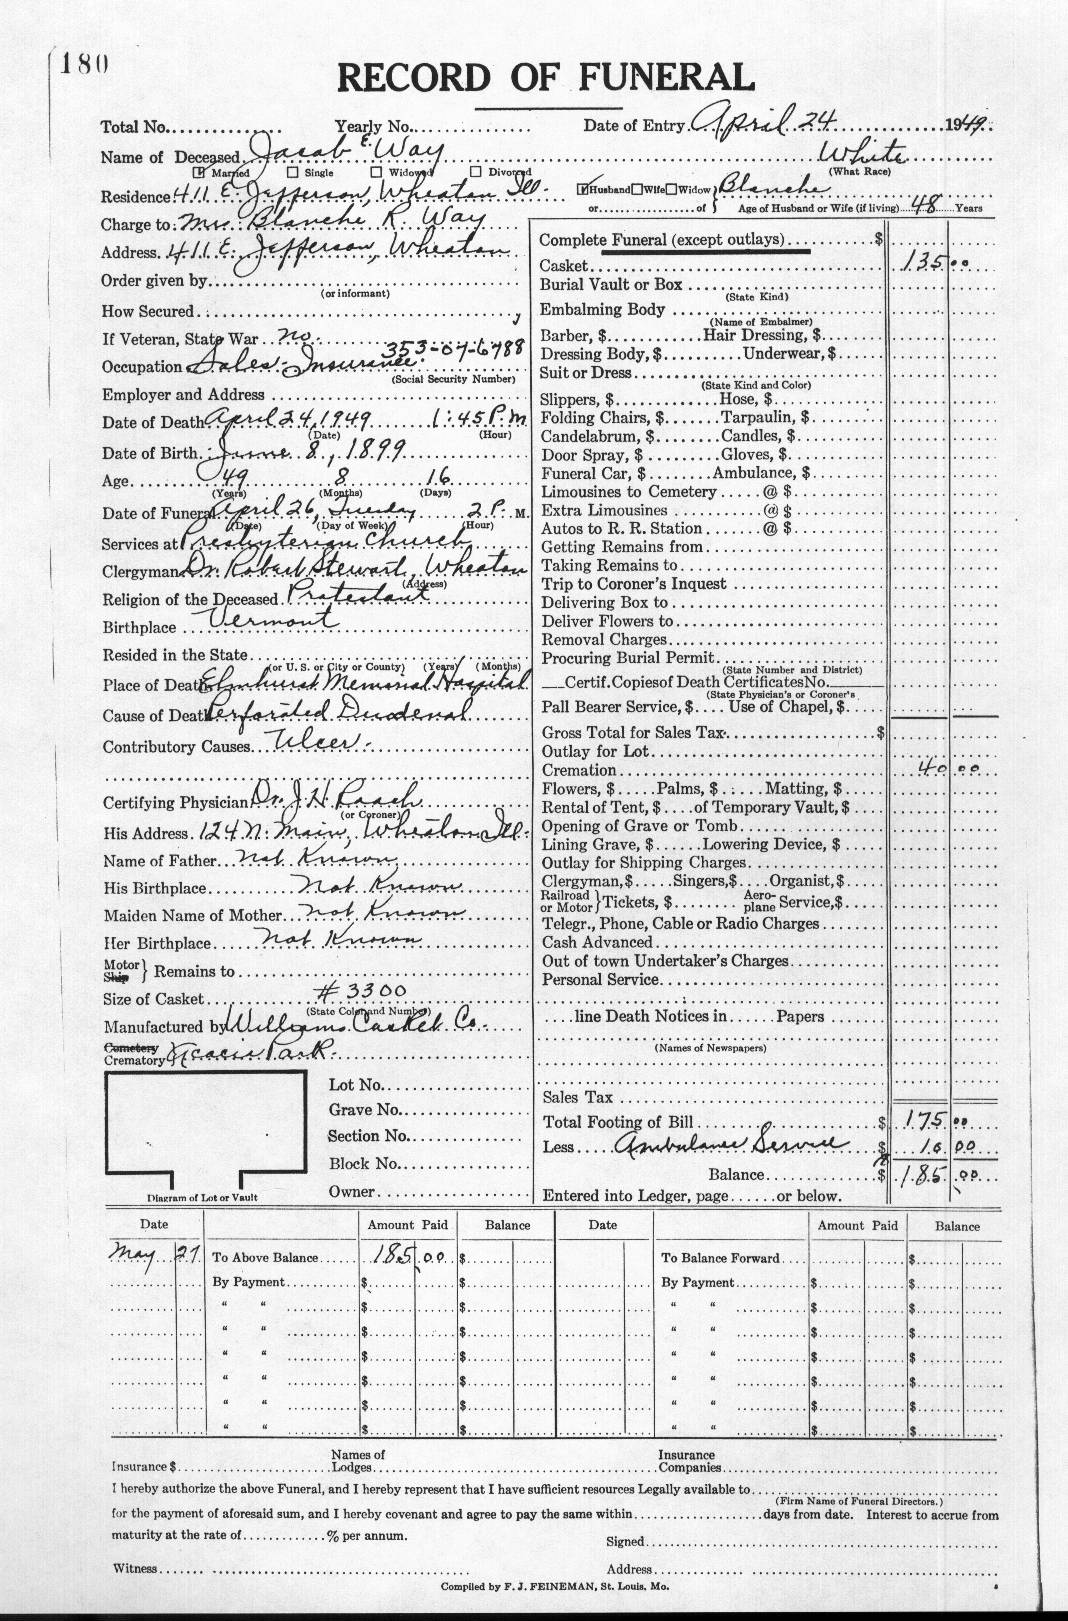 180
RECORD OF FUNERAL
Total No. Yearly No. Date of Entry April 24 1949
Name of Deceased Jacob E. Way White
Married Single Widowed Divorced (What Race)
Residence 411 E. Jefferson, Wheaton Ill. Husband Wife Widow } Blanche
or of } Age of Husband or Wife (if living) 48 Years
Charge to Mrs. Blanche R. Way
Address 411 E. Jefferson, Wheaton
Order given by
(or informant)
How Secured
If Veteran, State War no.
353-07-6788
Occupation Sales - Insurance
(Social Security Number)
Employer and Address
Date of Death April 24, 1949 1:45 P.M
(Date) (Hour)
Date of Birth 8, 1899
Age 49 8 16
(Years) (Months) (Days)
Date of Funeral April 26, Tuesday 2 P. M.
(Date) (Day of Week) (Hour)
Services at Presbyterian Church
Clergyman Dr. Robert Stewart, Wheaton
(Address)
Religion of the Deceased Protestant
Birthplace Vermont
Resided in the State
(or U. S. or City or County) (Years) (Months)
Place of Death Elmhurst Memorial Hospital
Cause of Death Perforated Duodenal
Contributory Causes Ulcer.
Certifying Physician Dr. J. H. Raach
(or Coroner)
His Address 124 N. Main, Wheaton Ill.
Name of Father Not Known
His Birthplace Not Known
Maiden Name of Mother Not Known
Her Birthplace Not Known
Motor
Ship } Remains to
Size of Casket # 3300
(State Color and Number)
Manufactured by Williams Casket Co.
Cemetery
Crematory Acacia Park.
Lot No.
Grave No.
Section No.
Block No.
Owner
Diagram of Lot or Vault
Complete Funeral (except outlays) $
Casket 135 00
Burial Vault or Box
(State Kind)
Embalming Body
(Name of Embalmer)
Barber, $ Hair Dressing, $
Dressing Body, $ Underwear, $
Suit or Dress
(State Kind and Color)
Slippers, $ Hose, $
Folding Chairs, $ Tarpaulin, $
Candelabrum, $ Candles, $
Door Spray, $ Gloves, $
Funeral Car, $ Ambulance, $
Limousines to Cemetery @ $
Extra Limousines @ $
Autos to R. R. Station @ $
Getting Remains from
Taking Remains to
Trip to Coroner's Inquest
Delivering Box to
Deliver Flowers to
Removal Charges
Procuring Burial Permit
(State Number and District)
Certif. Copies of Death Certificates No.
(State Physician's or Coroner's
Pall Bearer Service, $ Use of Chapel, $
Gross Total for Sales Tax $
Outlay for Lot
Cremation 40 00
Flowers, $ Palms, $ Matting, $
Rental of Tent, $ of Temporary Vault, $
Opening of Grave or Tomb
Lining Grave, $ Lowering Device, $
Outlay for Shipping Charges
Clergyman, $ Singers, $ Organist, $
Railroad or Motor } Tickets, $ Aeroplane Service, $
Telegr., Phone, Cable or Radio Charges
Cash Advanced
Out of town Undertaker's Charges
Personal Service
line Death Notices in Papers
(Names of Newspapers)
Sales Tax
Total Footing of Bill $ 175 00
Less Ambulance Service $ 10 00
Balance $ 185 00
Entered into Ledger, page or below.
Date Amount Paid Balance Date Amount Paid Balance
May 27 To Above Balance 185 00 $ To Balance Forward $
By Payment $ $ By Payment $ $
" " $ $ " " $ $
" " $ $ " " $ $
" " $ $ " " $ $
" " $ $ " " $ $
" " $ $ " " $ $
" " $ $ " " $ $
Insurance $ Names of Lodges Insurance Companies
I hereby authorize the above Funeral, and I hereby represent that I have sufficient resources Legally available to
(Firm Name of Funeral Directors.)
for the payment of aforesaid sum, and I hereby covenant and agree to pay the same within days from date. Interest to accrue from
maturity at the rate of % per annum.
Signed
Witness Address
Compiled by F. J. FEINEMAN, St. Louis, Mo.